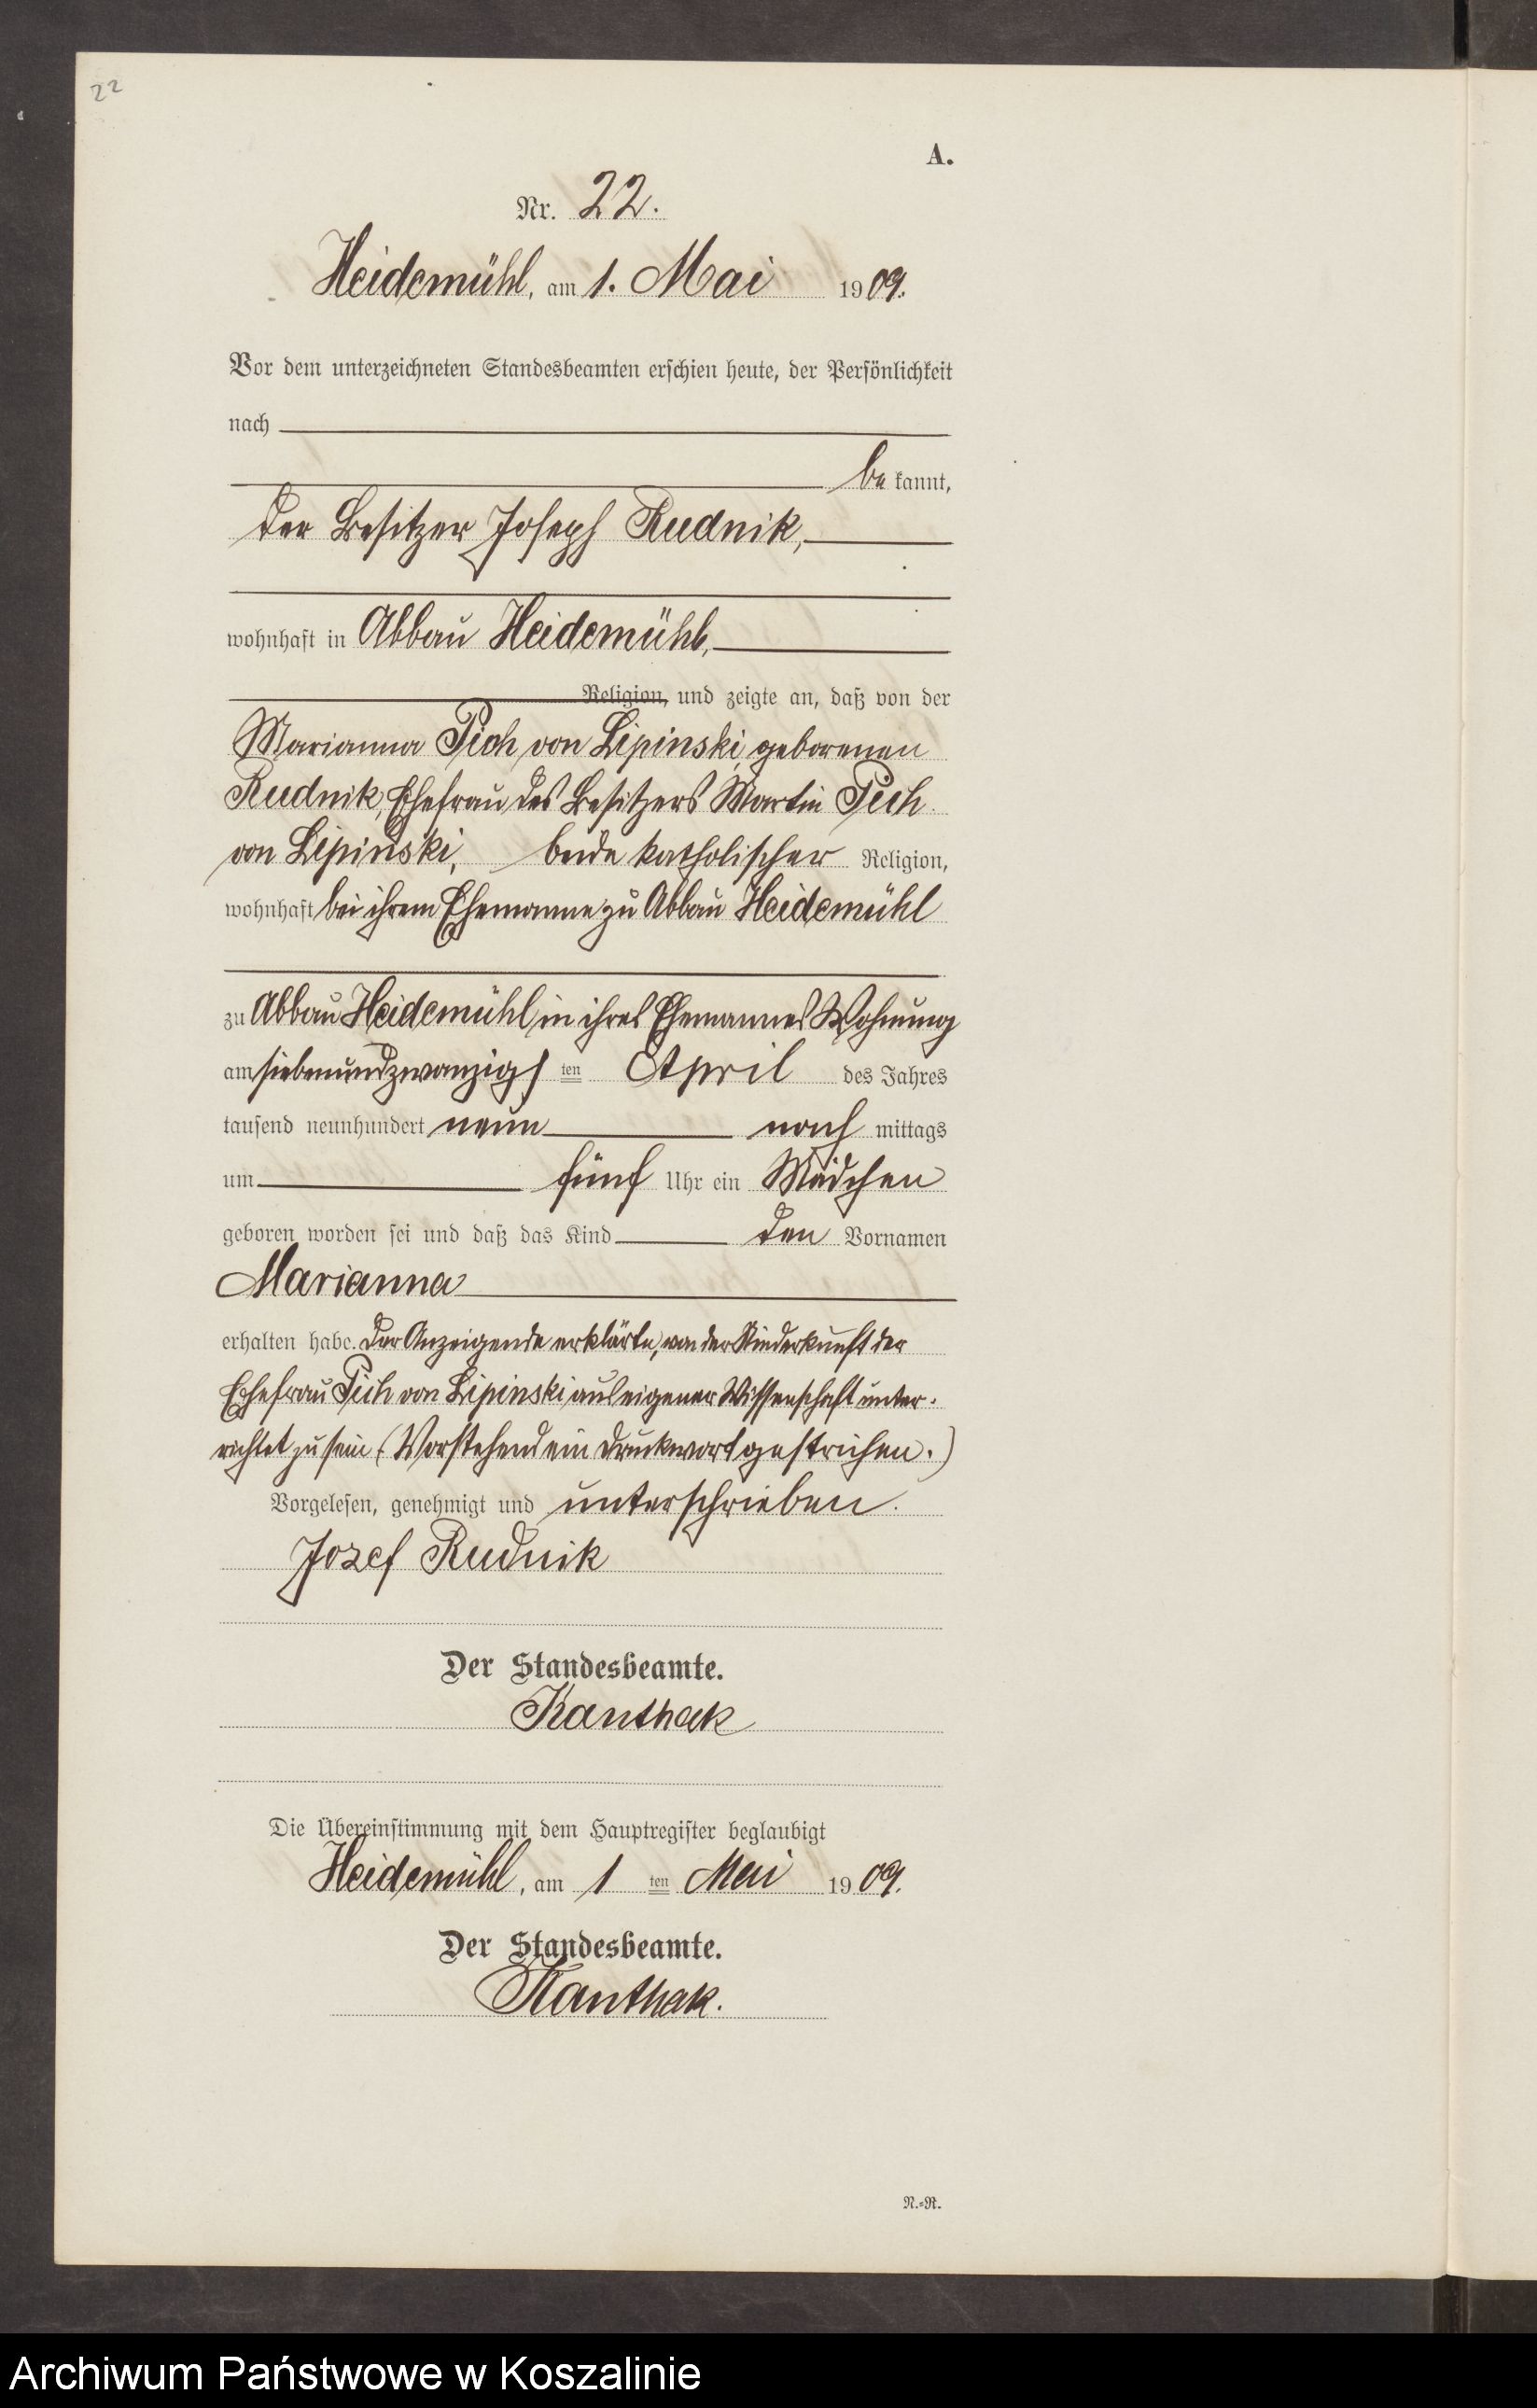 22
A.
Nr. 22.
Heidemühl, am 1. Mai 1909.
Vor dem unterzeichneten Standesbeamten erschien heute, der Persönlichkeit
nach
be kannt,
der Besitzer Joseph Rudnik,
wohnhaft in Abbau Heidemühl,
Religion, und zeigte an, daß von der
Marianna Pich von Lipinski, geborenen
Rudnik, Ehefrau des Besitzers Martin Pich
von Lipinski, beide katholischer Religion,
wohnhaft bei ihrem Ehemanne zu Abbau Heidemühl
zu Abbau Heidemühl in ihres Ehemannes Wohnung
am siebenundzwanzigs ten April des Jahres
tausend neunhundert neun nach mittags
um fünf Uhr ein Mädchen
geboren worden sei und daß das Kind den Vornamen
Marianna
erhalten habe. Der Anzeigende erklärte, von der Niederkunft der
Ehefrau Pich von Lipinski aus eigener Wissenschaft unter-
richtet zu sein. (Vorstehend ein Druckwort gestrichen.)
Vorgelesen, genehmigt und unterschrieben.
Jozef Rudnik
Der Standesbeamte.
Kanthak
Die Übereinstimmung mit dem Hauptregister beglaubigt
Heidemühl, am 1 ten Mai 1909.
Der Standesbeamte.
Kanthak.
N.=R.
Archiwum Państwowe w Koszalinie